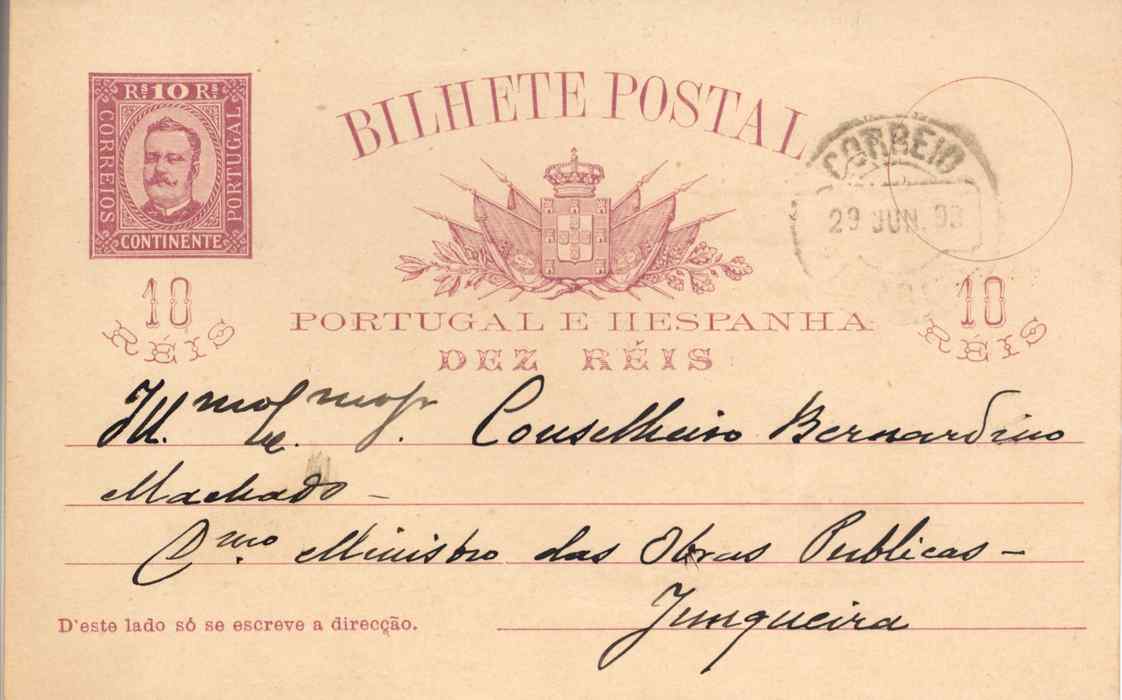 Rs. 10 Rs.
CORREIOS
PORTUGAL
CONTINENTE
BILHETE POSTAL
CORREIO
29 JUN. 93
10
RÉIS
10
RÉIS
PORTUGAL E HESPANHA
DEZ RÉIS
Ill.mo e Ex.mo Sr. Conselheiro Bernardino
Machado -
D.mo Ministro das Obras Publicas -
Junqueira
D'este lado só se escreve a direcção.